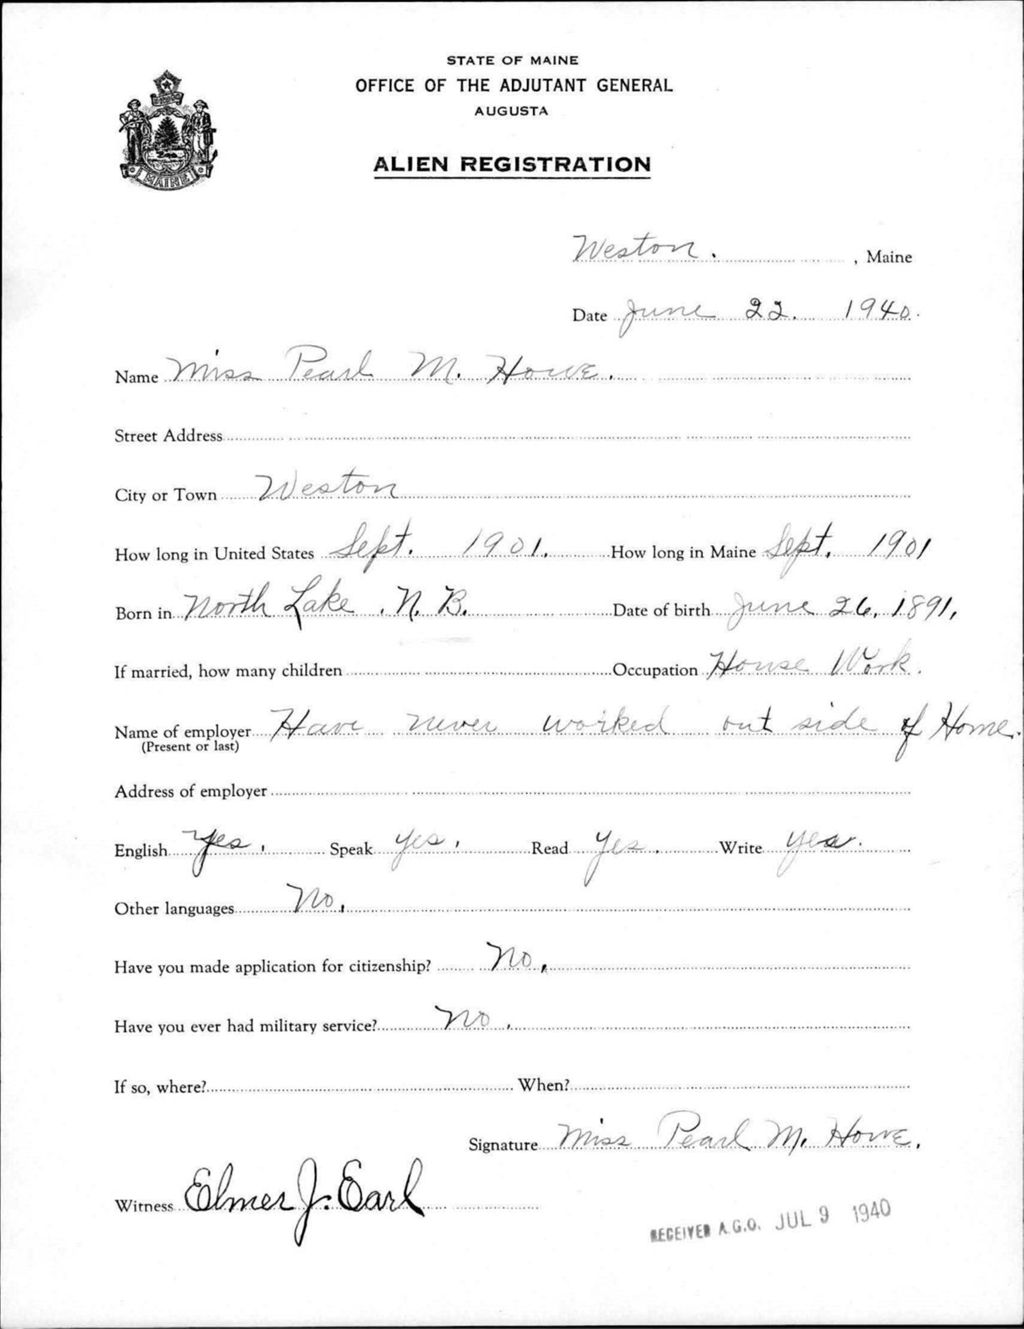 STATE OF MAINE
OFFICE OF THE ADJUTANT GENERAL
AUGUSTA
ALIEN REGISTRATION
MAINE
Weston. , Maine
Date June 22. 1940.
Name Miss Pearl M. Howe.
Street Address
City or Town Weston
How long in United States Sept. 1901. How long in Maine Sept. 1901
Born in North Lake, N. B. Date of birth June 26, 1891,
If married, how many children Occupation House Work.
Name of employer Have never worked out side of Home.
(Present or last)
Address of employer
English Yes. Speak yes. Read Yes. Write yes.
Other languages No.
Have you made application for citizenship? No.
Have you ever had military service? No.
If so, where? When?
Signature Miss Pearl M. Howe.
Witness Elmer J. Earl
RECEIVED A.G.O. JUL 9 1940